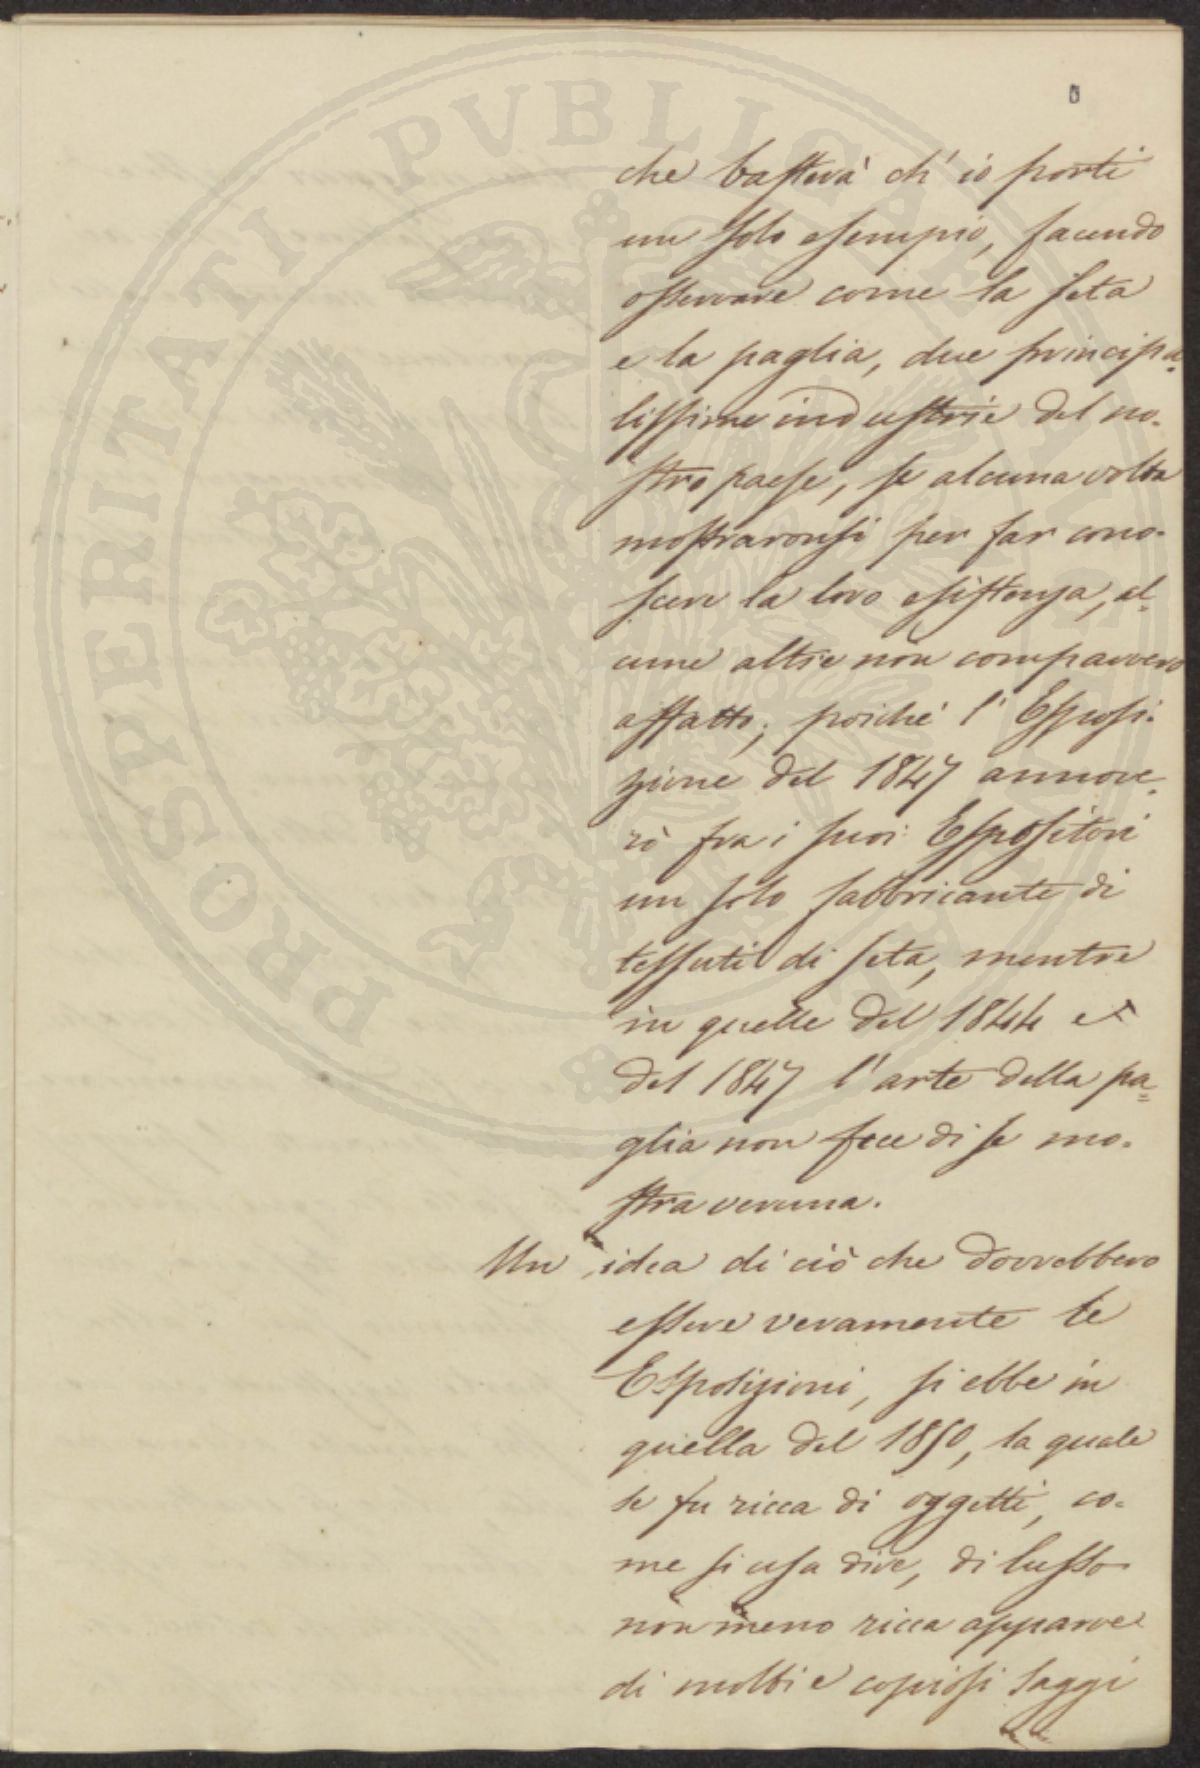 che basterà ch'io porti
un solo esempio, facendo
osservare come la seta
e la paglia, due principa=
lissime industrie del no-
stro paese, se alcuna volta
mostraronsi per far cono-
scere la loro esistenza, al=
cune altre non comparvero
affatto; poiché l'Esposi-
zione del 1847 annove=
rò fra i suoi Espositori
un solo fabbricante di
tessuti di seta, mentre
in quelle del 1844 e
del 1847 l'arte della pa=
glia non fece di se mo-
stra veruna.
Un' idea di ciò che dovrebbero
essere veramente le
Esposizioni, si ebbe in
quella del 1850, la quale
se fu ricca di oggetti, co-
me si usa dire, di lusso
non meno ricca apparve
di molti e copiosi saggi
PROSPERITATI PUBLICAE